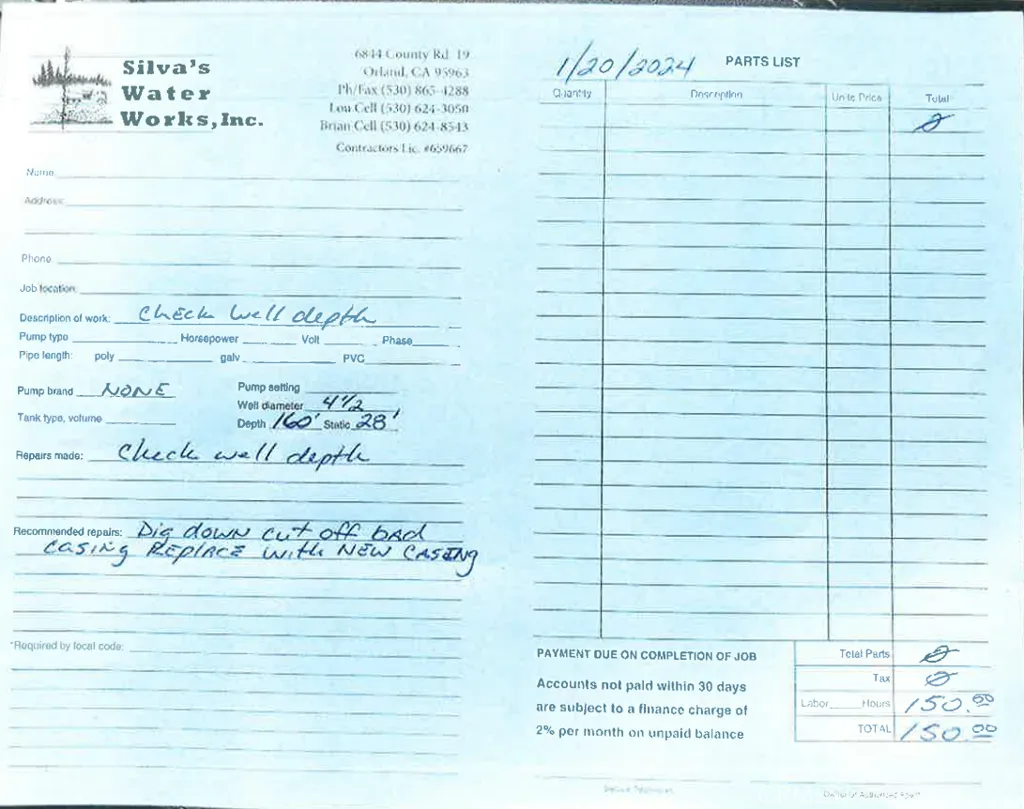 Silva's
Water
Works, Inc.
6844 County Rd. 19
Orland, CA 95963
Ph/Fax (530) 865-4288
Lou Cell (530) 624-3050
Brian Cell (530) 624-8543
Contractors Lic. #659667
Name
Address:
Phone
Job location:
Description of work: Check Well depth
Pump type Horsepower Volt Phase
Pipe length: poly galv. PVC
Pump brand NONE Pump setting
Well diameter 4 1/2
Tank type, volume Depth 160' Static 28'
Repairs made: Check well depth
Recommended repairs: Dig down cut off bad
casing Replace with New Casing
*Required by local code:
1/20/2024 PARTS LIST
Quantity Description Unite Price Total
0
PAYMENT DUE ON COMPLETION OF JOB
Accounts not paid within 30 days
are subject to a finance charge of
2% per month on unpaid balance
Total Parts 0
Tax 0
Labor Hours 150.00
TOTAL 150.00
Owner or Authorized Agent